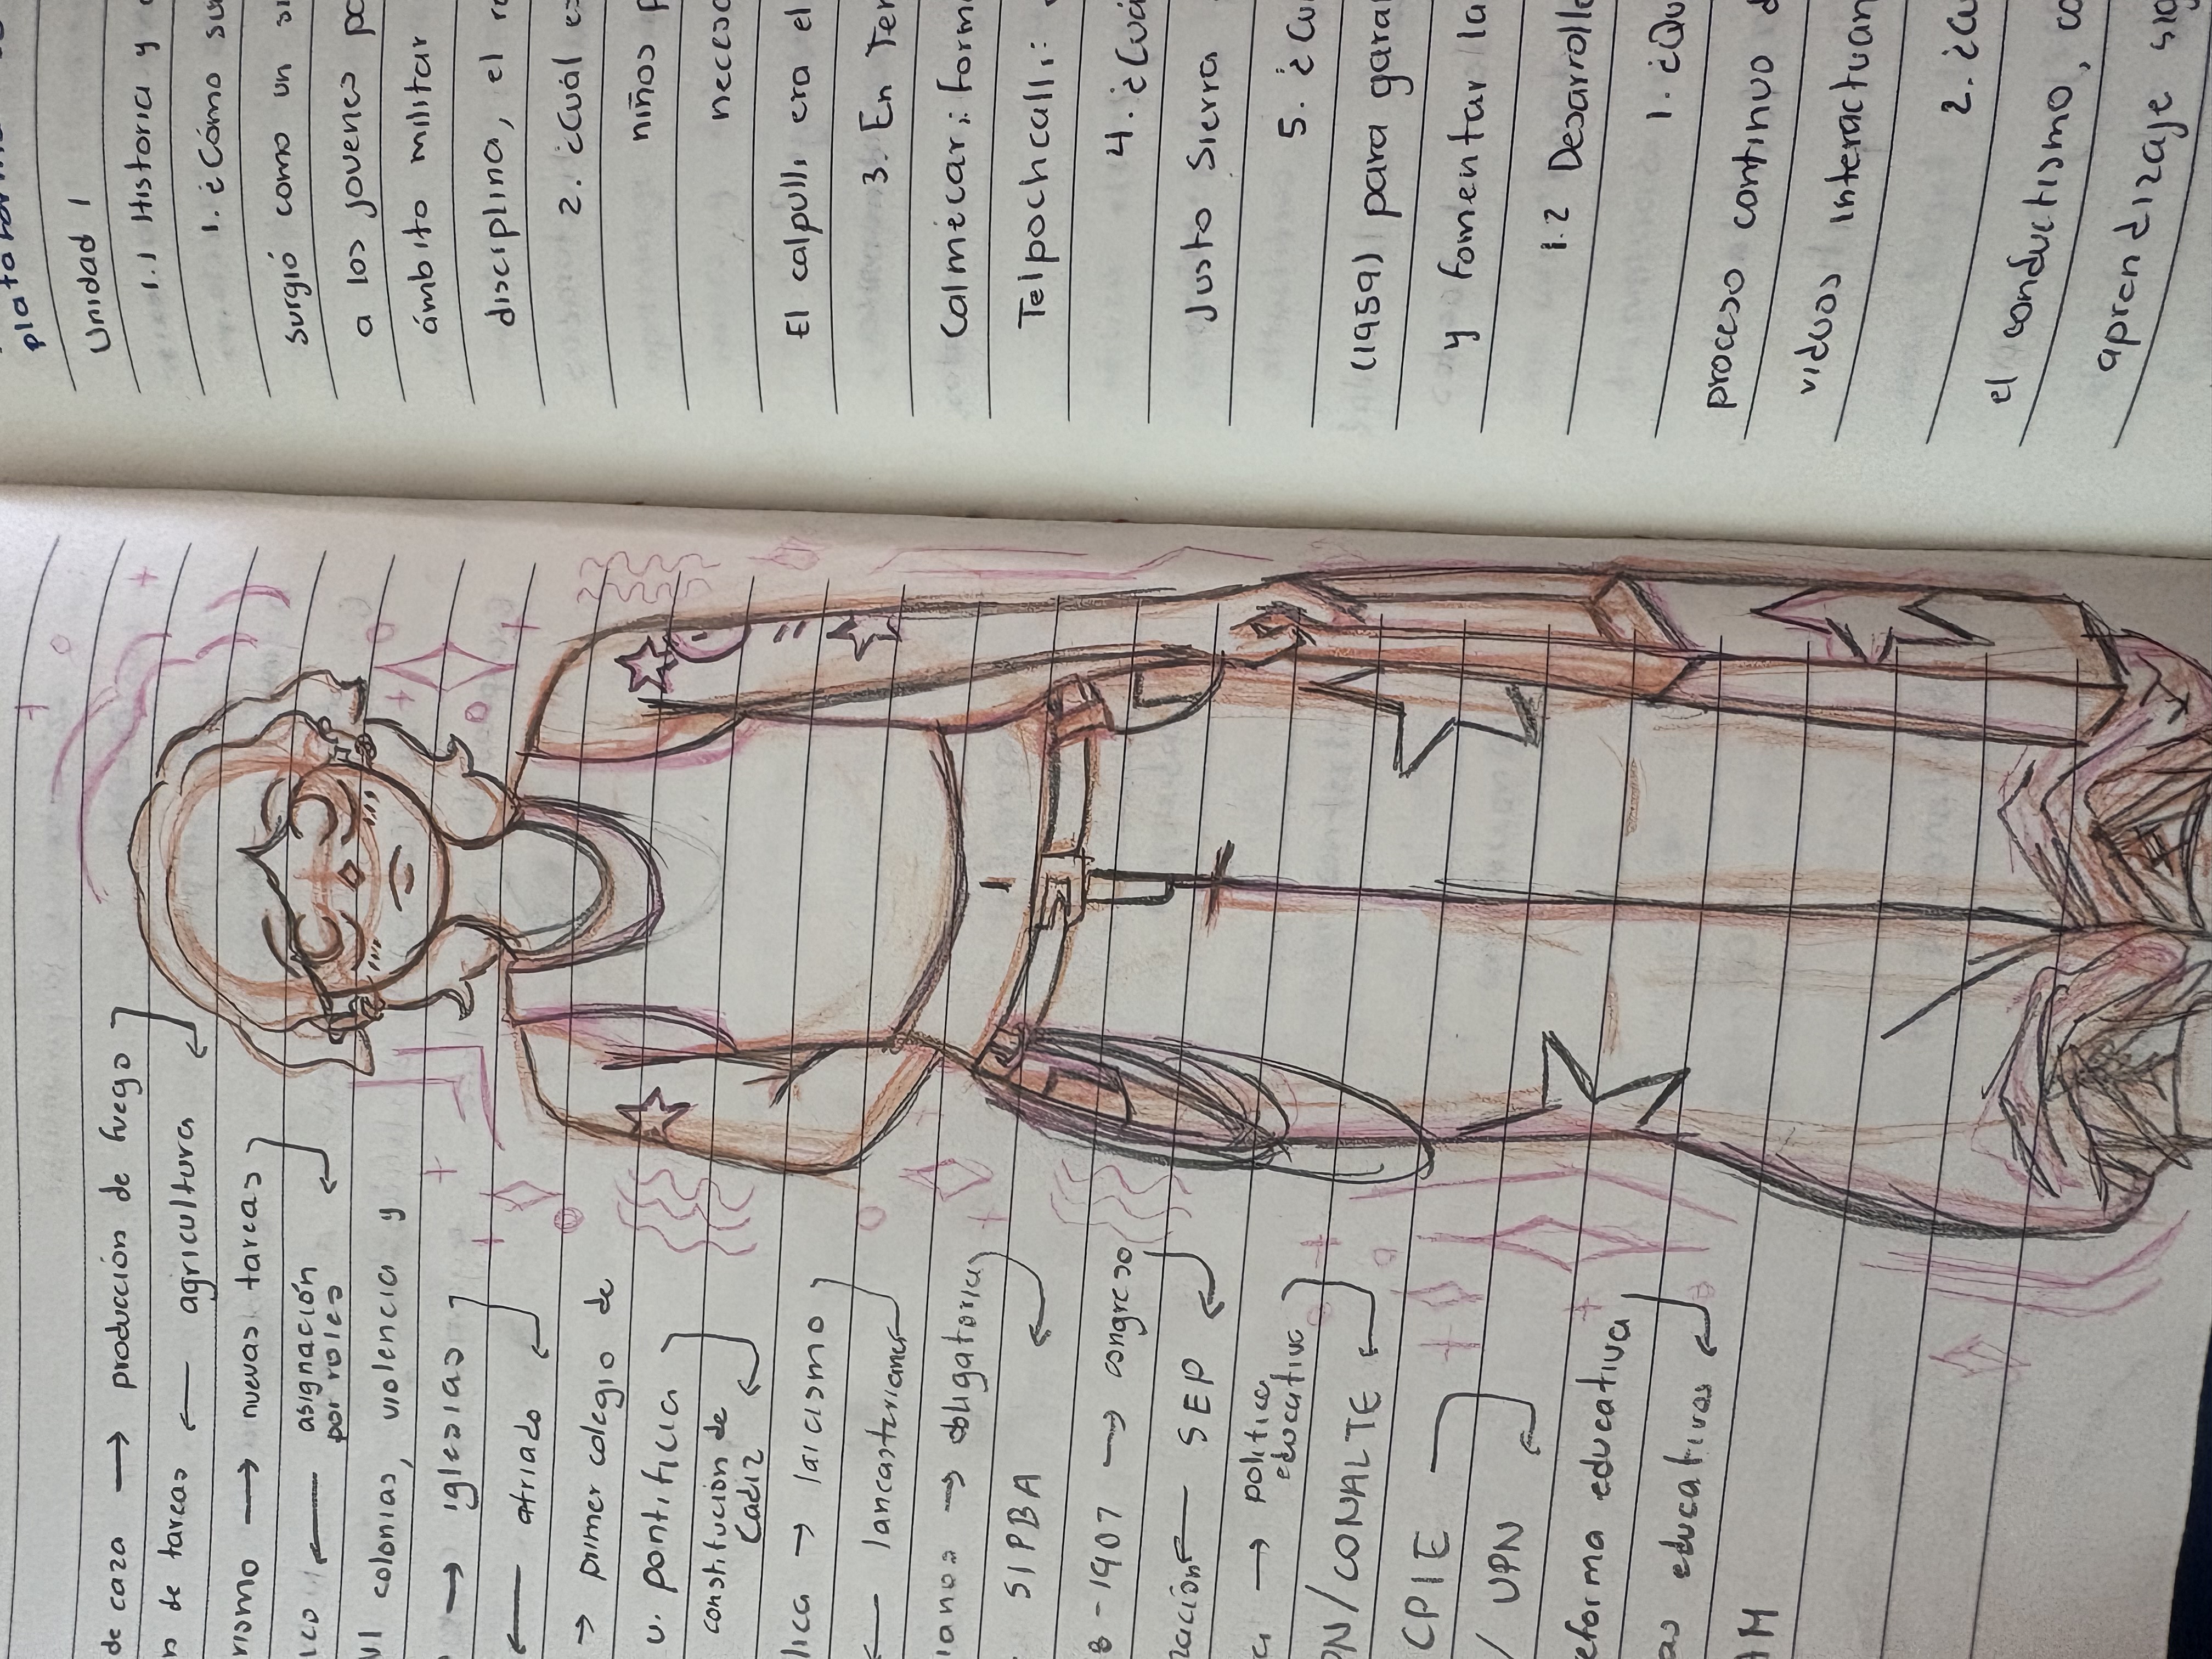 de caza → producción de fuego
n de tareas ← agricultura
rismo → nuevas tareas
ico ← asignación
por roles
VI colonias, violencia y
→ iglesias
← atriado
→ primer colegio de
U. pontificia
constitución de
Cadiz
lica → laicismo
← lancasteriana
ianos → obligatorias
SIPBA
8-1907 → congreso
zación ← SEP
a → politica
educativa
PN/CONALTE
CPIE
/ UPN
eforma educativa
as educativas
AM
Unidad 1
1.1 Historia y
1. ¿Cómo su
surgió como un si
a los jovenes pa
ámbito militar
disciplina, el re
2. ¿Cuál es
niños p
necesa
El calpulli era el
3. En Ten
Calmécac: form
Telpochcalli:
4. ¿Cuá
Justo Sierra
5. ¿Cu
(1959) para garan
y fomentar la
1.2 Desarrollo
1. ¿Qu
proceso continuo d
viduos interactuan
2. ¿Cu
el conductismo, co
aprendizaje sig